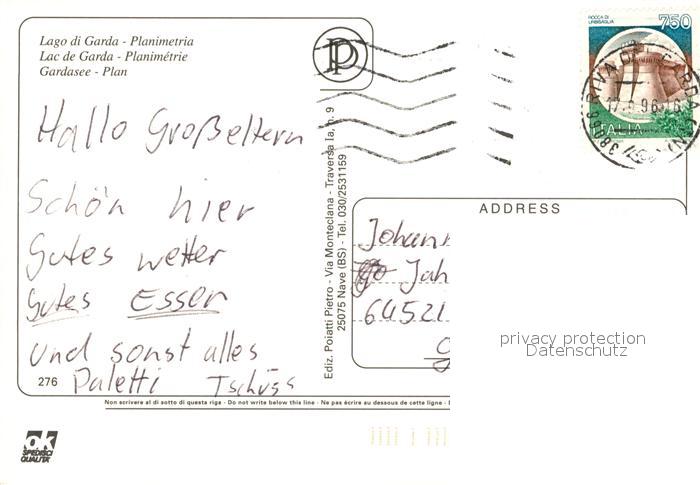 Lago di Garda - Planimetria
Lac de Garda - Planimétrie
Gardasee - Plan
P
ROCCA DI URBISAGLIA
750
ITALIA
38066 RIVA DEL GARDA
Hallo Großeltern
Schön hier
Gutes wetter
Gutes Essen
und sonst alles
Paletti Tschüss
276
Ediz. Poiatti Pietro - Via Monteclana - Traversa Ia, n. 9
25075 Nave (BS) - Tel. 030/2531159
ADDRESS
Johann
Jah
64521
G
privacy protection
Datenschutz
Non scrivere al di sotto di questa riga - Do not write below this line - Ne pas écrire au dessous de cette ligne -
ok
SPEDISCI
QUALITÀ